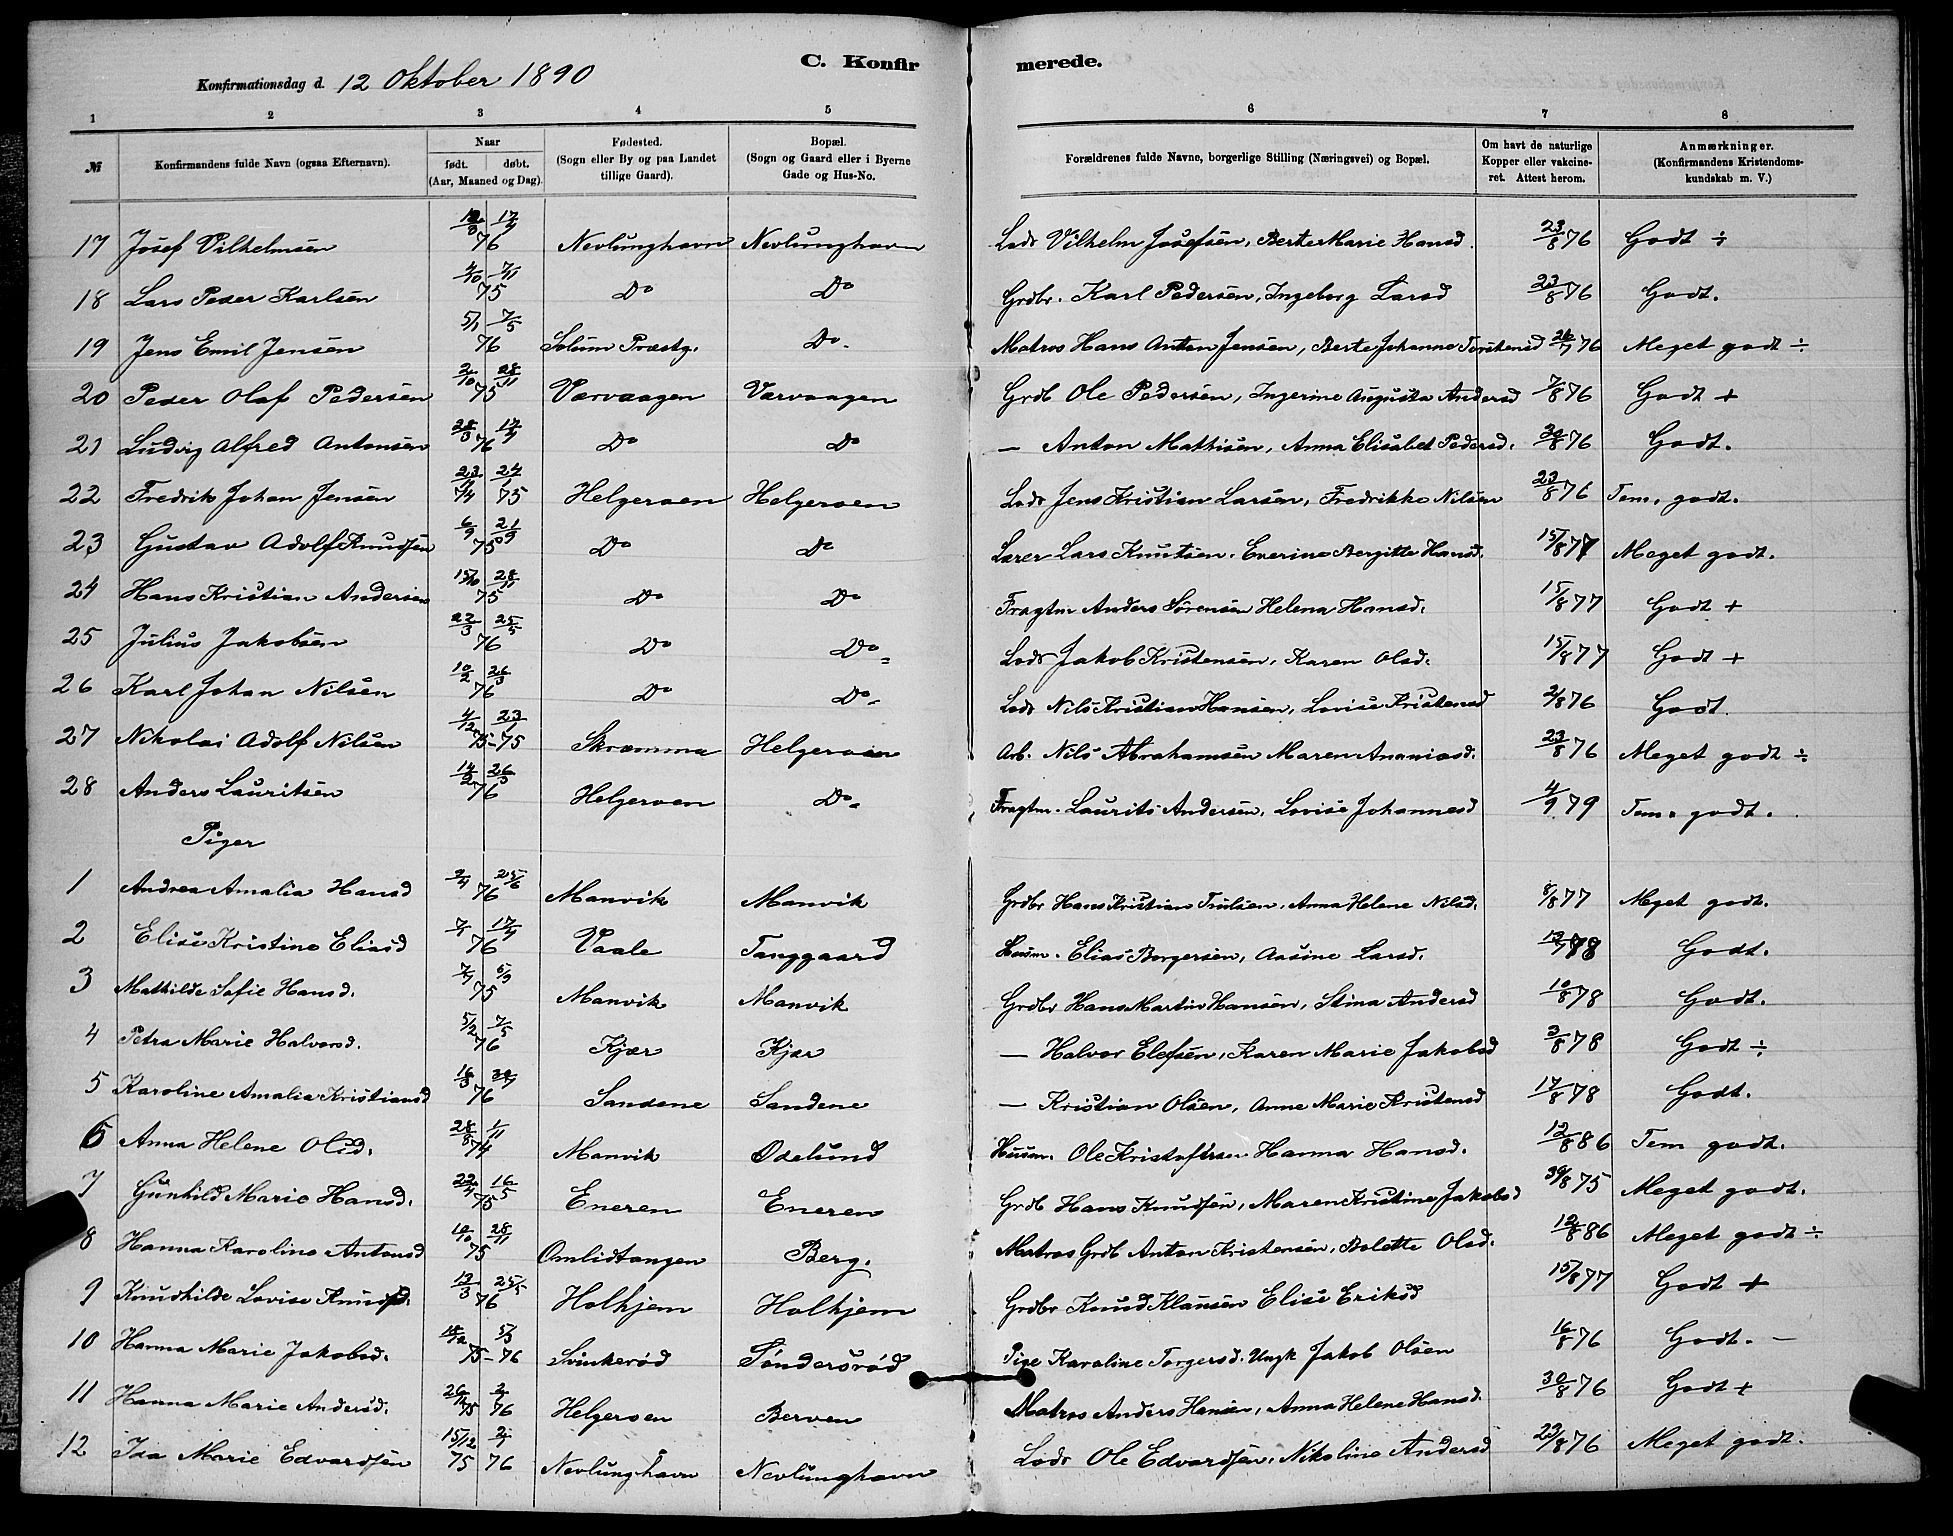 C. Konfirmerede.
Konfirmationsdag d. 12 Oktober 1890
1 2 3 4 5 6 7 8
№ Konfirmandens fulde Navn (ogsaa Efternavn). Naar født. døbt. (Aar, Maaned og Dag). Fødested. (Sogn eller By og paa Landet tillige Gaard). Bopæl. (Sogn og Gaard eller i Byerne Gade og Hus-No. Forældrenes fulde Navne, borgerlige Stilling (Næringsvei) og Bopæl. Om havt de naturlige Kopper eller vakcineret. Attest herom. Anmærkninger. (Konfirmandens Kristendomskundskab m. V.)
17 Josef Vilhelmsen 17/4 76 Nevlunghavn Nevlunghavn Lods Vilhelm Josefsen, Berte Marie Hansd. 23/8 76 Godt ÷
18 Lars Peder Karlsen 4/10 7/11 75 Do Do Grdbr. Karl Pedersen, Ingeborg Larsd 23/8 76 Godt.
19 Jens Emil Jensen 5/1 7/5 76 Solum Præstg. Do Matros Hans Anton Jensen, Berte Johanne Torstensd 26/7 76 Meget godt ÷
20 Peder Olaf Pedersen 2/10 28/11 75 Værvaagen Værvaagen Grdb Ole Pedersen, Ingerine Augusta Andersd 7/8 76 Godt +
21 Ludvig Alfred Antonsen 28/3 17/4 76 Do Do — Anton Mathisen, Anna Elisabet Pedersd. 30/8 76 Godt.
22 Fredrik Johan Jensen 23/11 74 24/1 75 Helgeroen Helgeroen Lods Jens Kristian Larsen, Fredrikke Nilsen 23/8 76 Tem. godt.
23 Gustav Adolf Knudsen 6/9 21/9 75 Do Do Lærer Lars Knutsen, Enerine Bergitte Hansd. 15/8 77 Meget godt.
24 Hans Kristian Andersen 15/10 28/11 75 Do Do Fragtm Anders Sørensen Helena Hansd. 15/8 77 Godt +
25 Julius Jakobsen 22/3 25/5 76 Do Do Lods Jakob Kristensen, Karen Olsd. 15/8 77 Godt +
26 Karl Johan Nilsen 10/2 26/3 76 Do Do Lods Nils Kristian Hansen, Lovise Kristensd 2/8 76 Godt
27 Nikolai Adolf Nilsen 4/12 75 - 23/1 75 Skræmma Helgeroen Arb. Nils Abrahamsen Maren Ananiasd. 23/8 76 Meget godt ÷
28 Anders Lauritsen 14/2 26/3 76 Helgeroen Do Fragtm. Laurits Andersen, Lovise Johannesd 4/9 79 Tem. godt.
Piger
1 Andrea Amalia Hansd 2/4 25/6 76 Manvik Manvik Grdbr Hans Kristian Trulsen, Anna Helene Nilsd. 8/8 77 Meget godt.
2 Elise Kristine Eliasd 17/4 76 Vaale Tanggaard Husm. Elias Borgersen, Aasine Larsd. 78 Godt.
3 Mathilde Sofie Hansd. 7/7 5/9 75 Manvik Manvik Grdbr Hans Martin Hansen, Stina Andersd 10/8 78 Godt.
4 Petra Marie Halvorsd. 5/2 7/5 76 Kjær Kjær — Halvor Elefsen, Karen Marie Jakobsd 3/8 78 Godt ÷
5 Karoline Amalia Kristiansd 16/3 30/4 76 Sandene Sandene — Kristian Olsen, Anne Marie Kristensd 17/8 78 Godt.
6 Anna Helene Olsd. 28/8 1/11 74 Manvik Ødelund Husm. Ole Kristofersen Hanna Hansd. 12/8 86 Tem godt.
7 Gunhild Marie Hansd. 22/4 16/5 75 Eneren Eneren Grdb Hans Knudsen, Maren Kristine Jakobsd 30/8 75 Meget godt.
8 Hanna Karoline Antonsd 10/10 28/11 75 Omlidtangen Berg. Matros Grdb Anton Kristensen, Bolette Olsd. 12/8 86 Meget godt ÷
9 Knudhilde Lovise Knudsd. 13/3 25/5 76 Holhjem Holhjem Grdbr Knud Klausen Elise Eriksd 15/8 77 Godt +
10 Hanna Marie Jakobsd. 75 - 5/3 76 Svinkerød Søndersrød Pige Karoline Torgersd. Ungk Jakob Olsen 16/8 76 Godt. —
11 Hanna Marie Andersd. 26/11 75 2/1 76 Helgeroen Berven Matros Anders Hansen, Anna Helene Hansd. 30/8 76 Godt +
12 Ida Marie Edvardsen 15/12 75 2/1 76 Nevlunghavn Nevlunghavn Lods Ole Edvardsen, Nikoline Andersd 23/8 76 Meget godt.